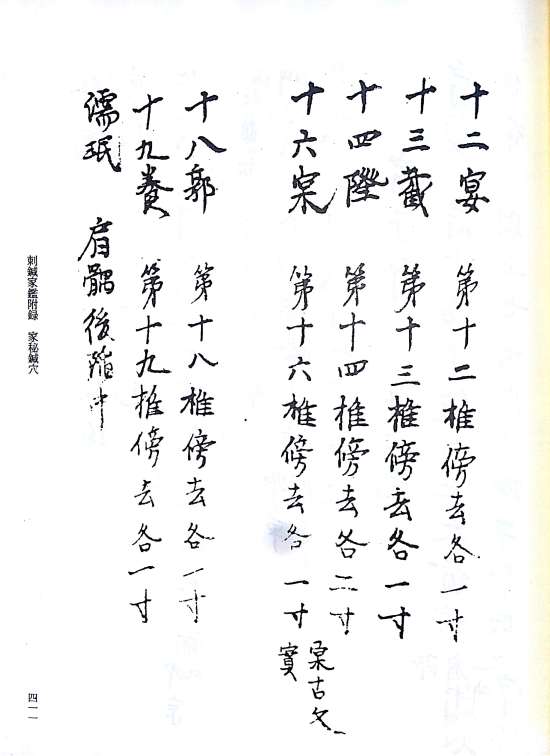 十二宴 第十二椎傍去各一寸
十三截 第十三椎傍去各一寸
十四陛 第十四椎傍去各二寸
十六宲 第十六椎傍去各一寸
宲古文
寳
十八郭 第十八椎傍去各一寸
十九 第十九椎傍去各一寸
濡珉 肩髃後陥中
刺鍼家鑑附録 家秘鍼穴
四一一